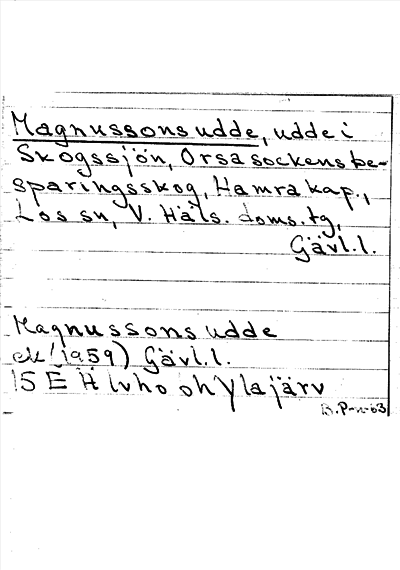 Magnussons udde, udde i
Skogssjön, Orsa sockens be-
sparingsskog, Hamra kap.,
Los sn, V. Häls. doms. tg,
Gävl.l.
Magnussons udde
ek! (1959) Gävl.l.
15 E H lvho oh Ylajärv
B.P-n-63